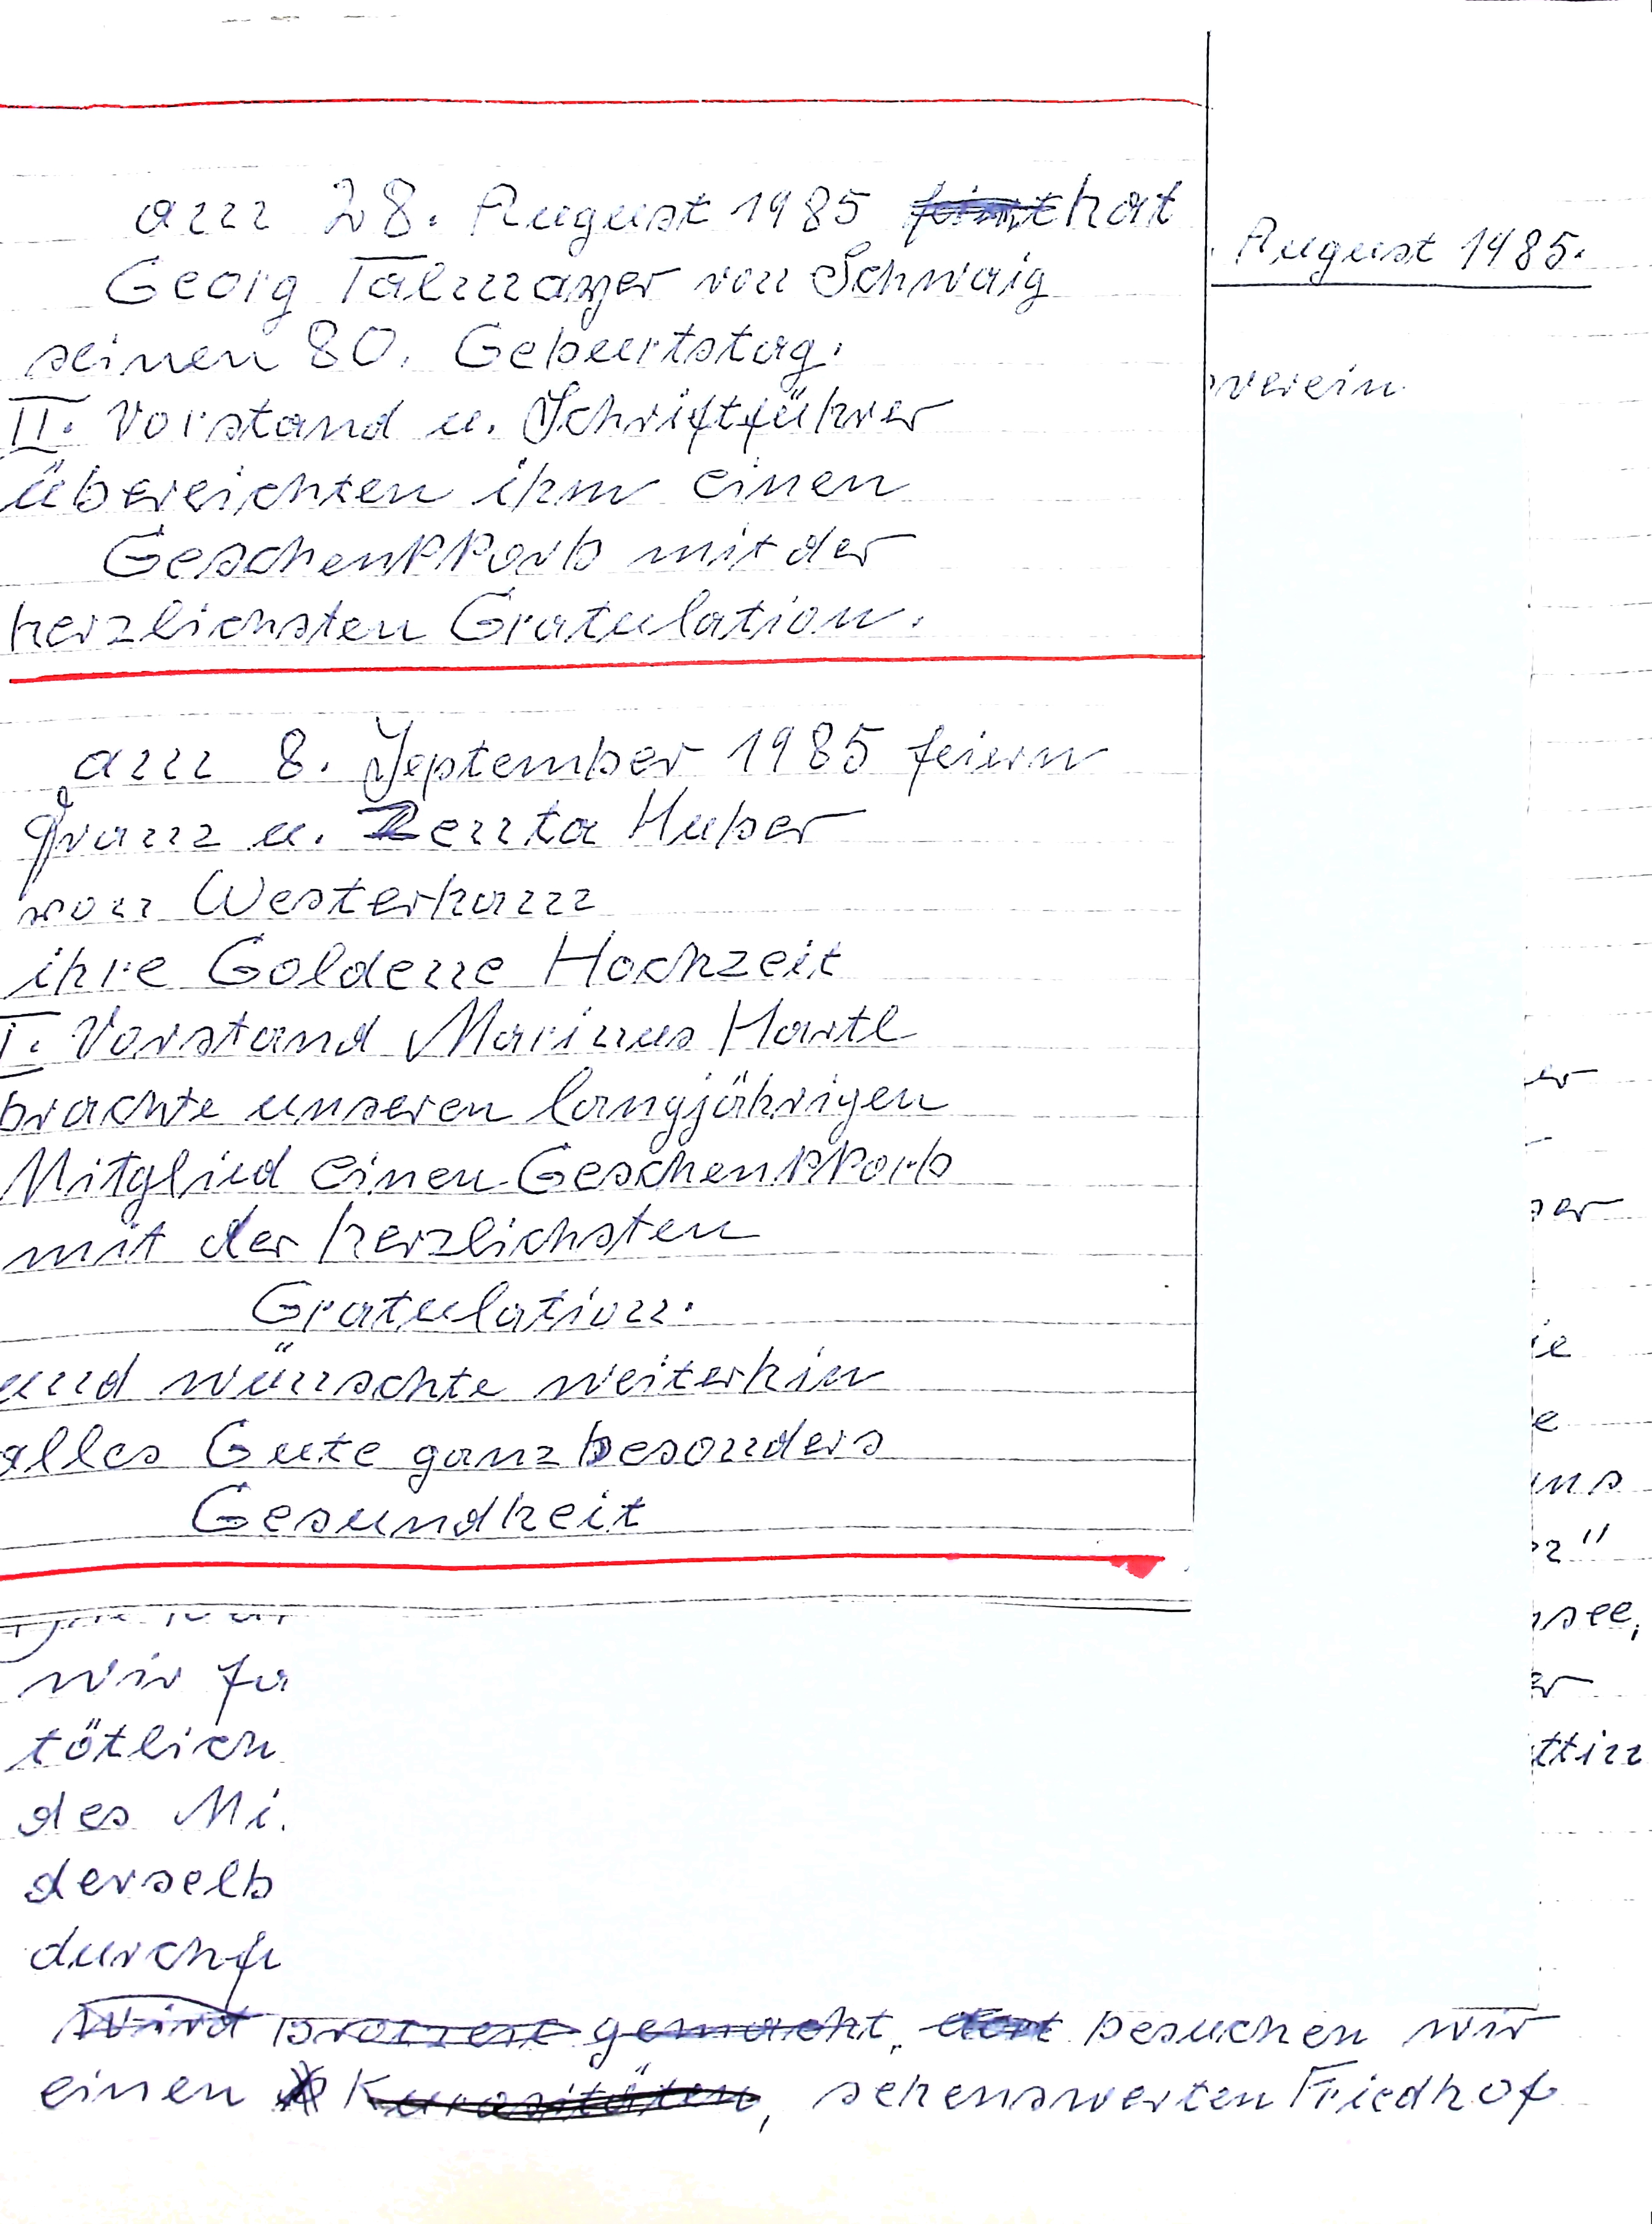 am 28. August 1985 hat
Georg Talmayer von Schwaig
seinen 80. Geburtstag.
II. Vorstand u. Schriftführer
übereichten ihm einen
Geschenkkorb mit der
herzlichsten Gratulation.
am 8. September 1985 feiern
Franz u. Zenta Huber
von Westerham
ihre Goldene Hochzeit
I. Vorstand Marinus Hartl
brachte unseren langjährigen
Mitglied einen Geschenkkorb
mit der herzlichsten
Gratulation.
und wünschte weiterhin
alles Gute ganz besonders
Gesundheit
August 1985.
verein
er
ser
ie
e
uns
z"
see,
er
ttin
wir fa
tötlich
des Mi
derselb
durchfu
wird brotzeit gemacht, dort besuchen wir
einen Kurositäten, sehenswerten Friedhof